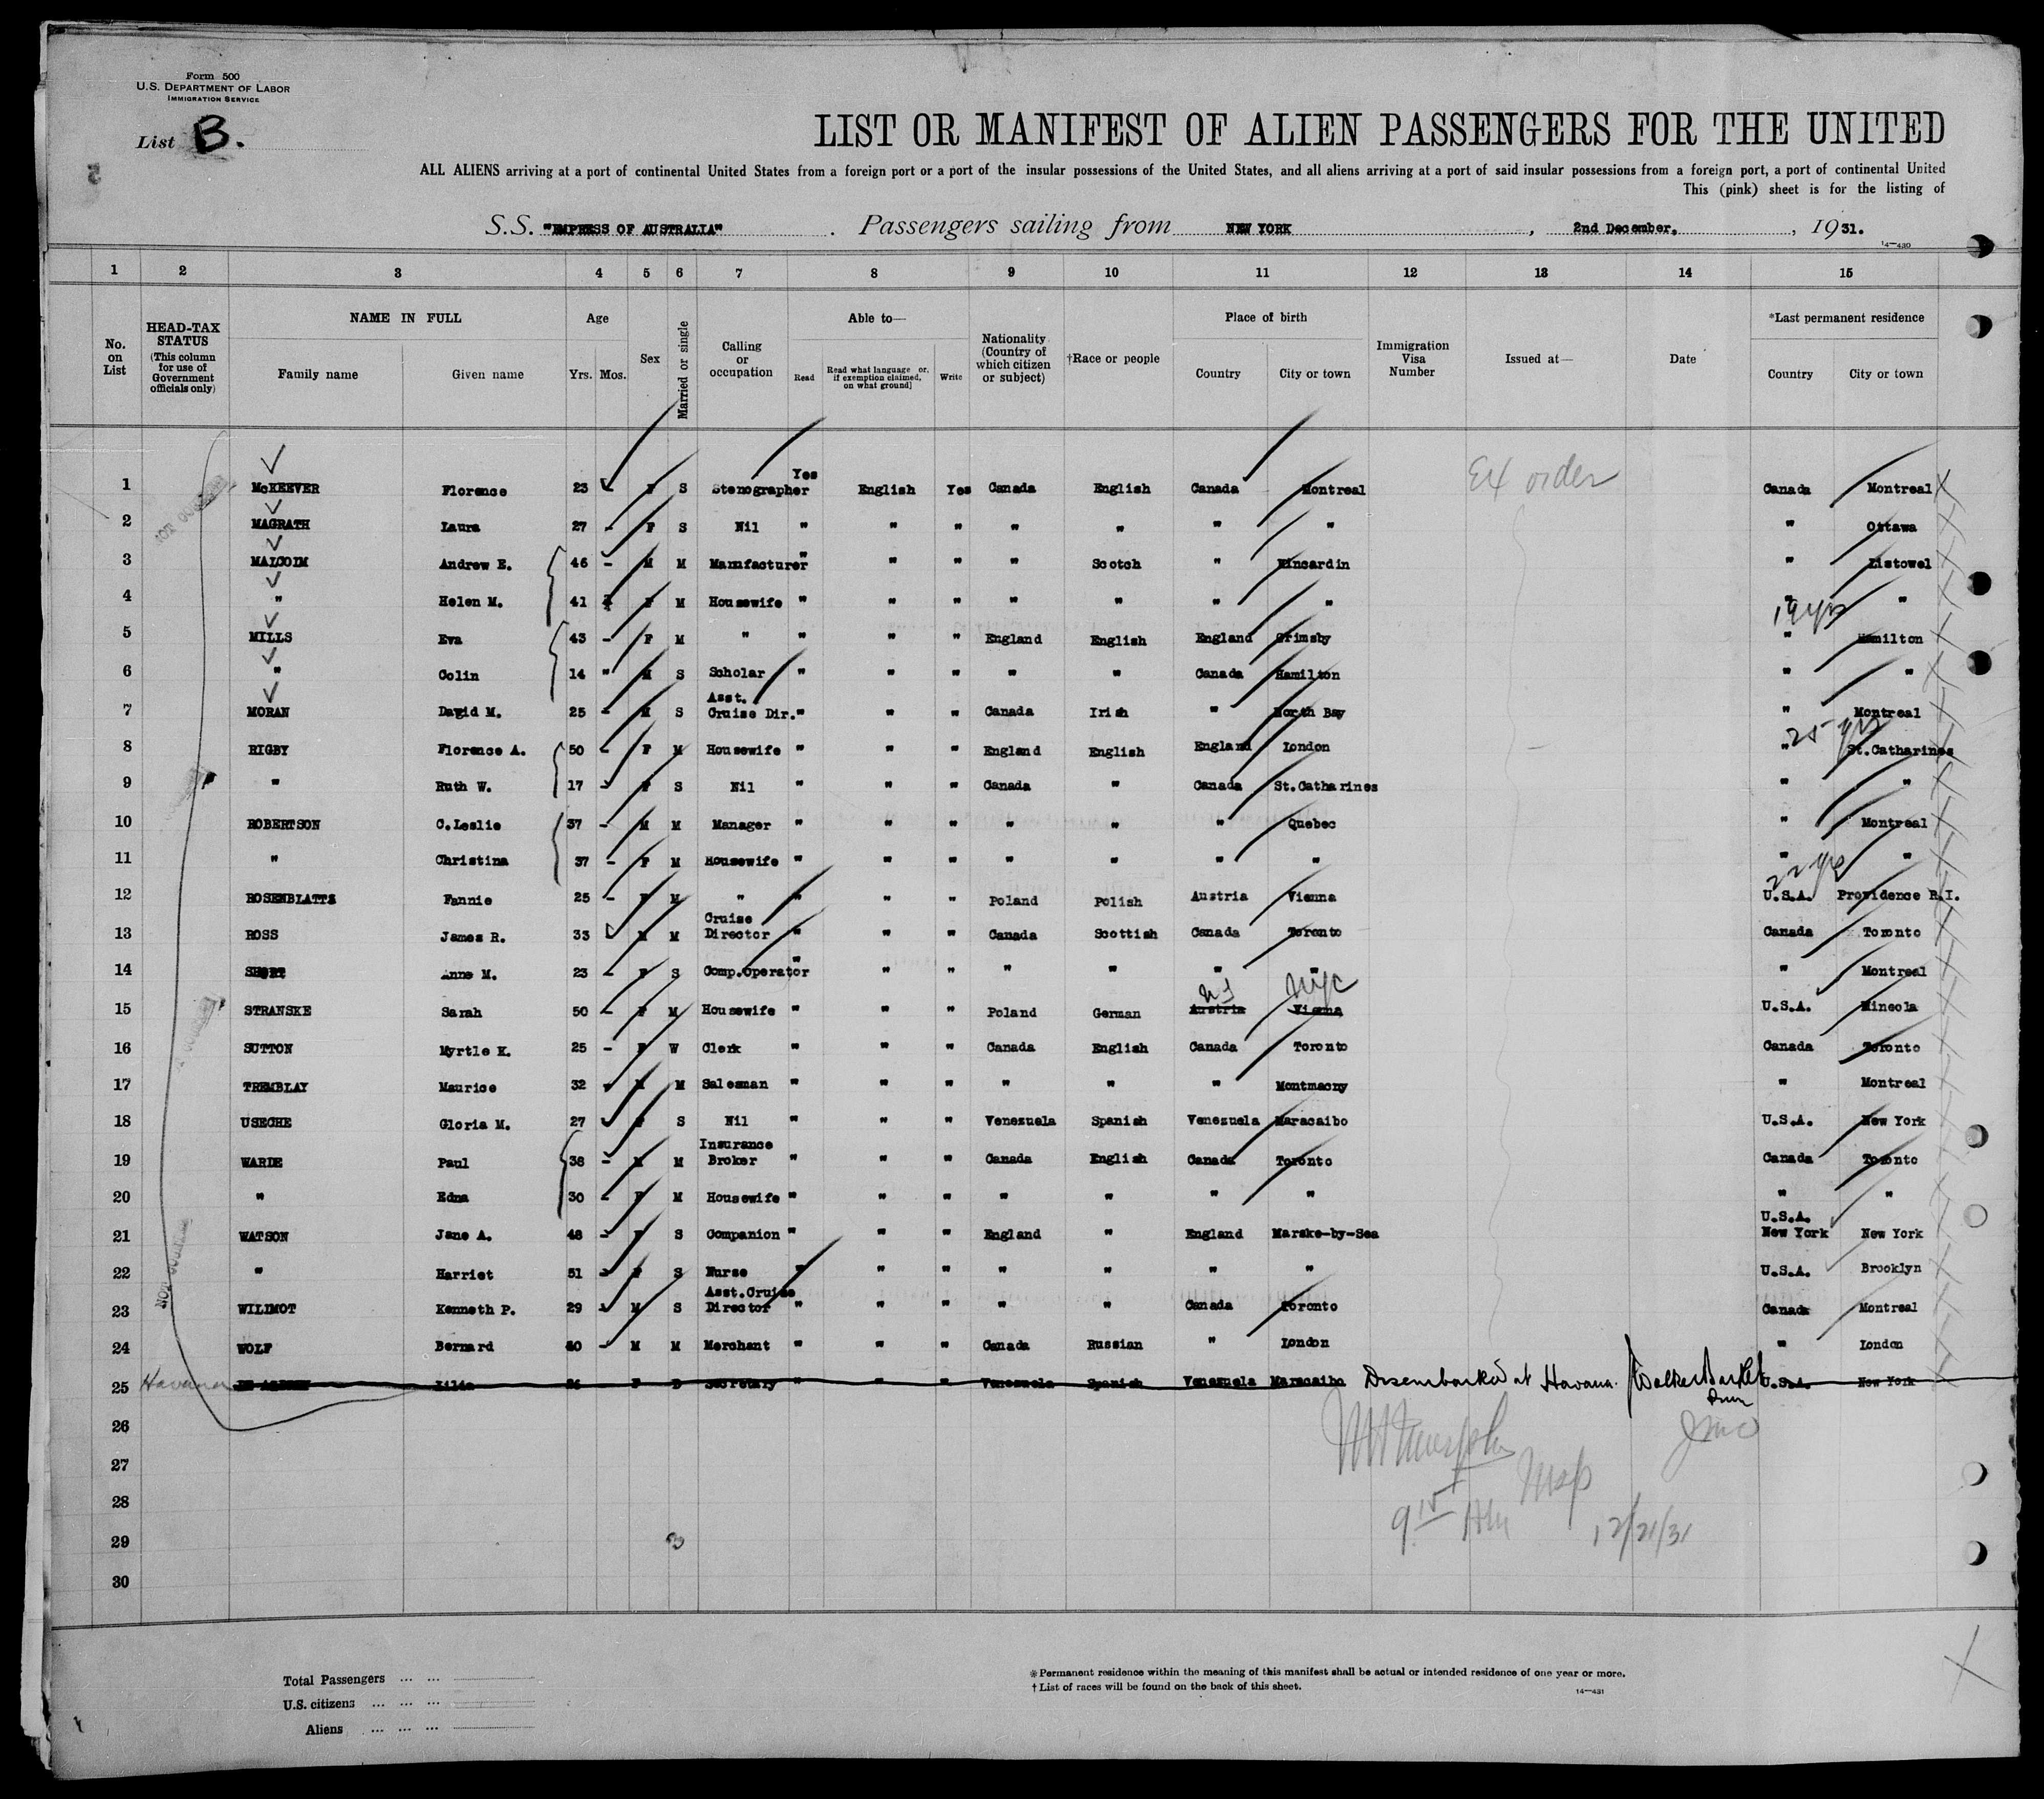 Form 500
U.S. DEPARTMENT OF LABOR
IMMIGRATION SERVICE
List B.
LIST OR MANIFEST OF ALIEN PASSENGERS FOR THE UNITED
ALL ALIENS arriving at a port of continental United States from a foreign port or a port of the insular possessions of the United States, and all aliens arriving at a port of said insular possessions from a foreign port, a port of continental United
This (pink) sheet is for the listing of
S.S. "EMPRESS OF AUSTRALIA" . Passengers sailing from NEW YORK , 2nd December, , 1931.
14—430
1 2 3 4 5 6 7 8 9 10 11 12 13 14 15
No. on List
HEAD-TAX STATUS (This column for use of Government officials only)
NAME IN FULL
Family name Given name
Age
Yrs. Mos.
Sex
Married or single
Calling or occupation
Able to—
Read Read what language [or, if exemption claimed, on what ground] Write
Nationality (Country of which citizen or subject)
†Race or people
Place of birth
Country City or town
Immigration Visa Number
Issued at—
Date
*Last permanent residence
Country City or town
1 McKEEVER Florence 23 - F S Stenographer Yes English Yes Canada English Canada Montreal Ex order Canada Montreal
2 MAGRATH Laura 27 - F S Nil " " " " " " " " Ottawa
3 MALCOLM Andrew E. 46 - M M Manufacturer " " " " Scotch " Kincardin " Listowel
4 " Helen M. 41 F M Housewife " " " " " " " " "
19 yrs
5 MILLS Eva 43 - F M " " " " England English England Grimsby " Hamilton
6 " Colin 14 " M S Scholar " " " " " Canada Hamilton " "
7 MORAN David M. 25 - M S Asst. Cruise Dir. " " " Canada Irish " North Bay " Montreal
25 yrs
8 RIGBY Florence A. 50 - F M Housewife " " " England English England London " St.Catharines
9 " Ruth W. 17 - F S Nil " " " Canada " Canada St.Catharines " "
10 ROBERTSON C.Leslie 37 - M M Manager " " " " " " Quebec " Montreal
11 " Christina 37 - F M Housewife " " " " " " " " "
22 yrs
12 ROSENBLATTS Fannie 25 - F M " " " " Poland Polish Austria Vienna U.S.A. Providence R.I.
13 ROSS James R. 33 M M Cruise Director " " " Canada Scottish Canada Toronto Canada Toronto
14 SHORT Anne M. 23 - F S Comp.Operator " " " " " " " " Montreal
NYC
15 STRANSKE Sarah 50 - F M Housewife " " " Poland German Austria Vienna U.S.A. Mineola
16 SUTTON Myrtle K. 25 - F W Clerk " " " Canada English Canada Toronto Canada Toronto
17 TREMBLAY Maurice 32 M M Salesman " " " " " " Montmagny " Montreal
18 USECHE Gloria M. 27 F S Nil " " " Venezuela Spanish Venezuela Maracaibo U.S.A. New York
19 WARDE Paul 38 - M M Insurance Broker " " " Canada English Canada Toronto Canada Toronto
20 " Edna 30 - F M Housewife " " " " " " " " "
21 WATSON Jane A. 48 - F S Companion " " " England " England Marske-by-Sea U.S.A. New York New York
22 " Harriet 51 - F S Nurse " " " " " " " U.S.A. Brooklyn
23 WILLMOT Kenneth P. 29 - M S Asst.Cruise Director " " " " " Canada Toronto Canada Montreal
24 WOLF Bernard 40 - M M Merchant " " " Canada Russian " London " London
25 Havana F D Secretary " " " Venezuela Spanish Venezuela Maracaibo Disembarked at Havana. U.S.A. New York
26
27
28
9 15 AM 12/21/31
29
30
Total Passengers ... ...
U.S. citizens ... ... ...
Aliens ... ... ...
*Permanent residence within the meaning of this manifest shall be actual or intended residence of one year or more.
†List of races will be found on the back of this sheet.
14—431